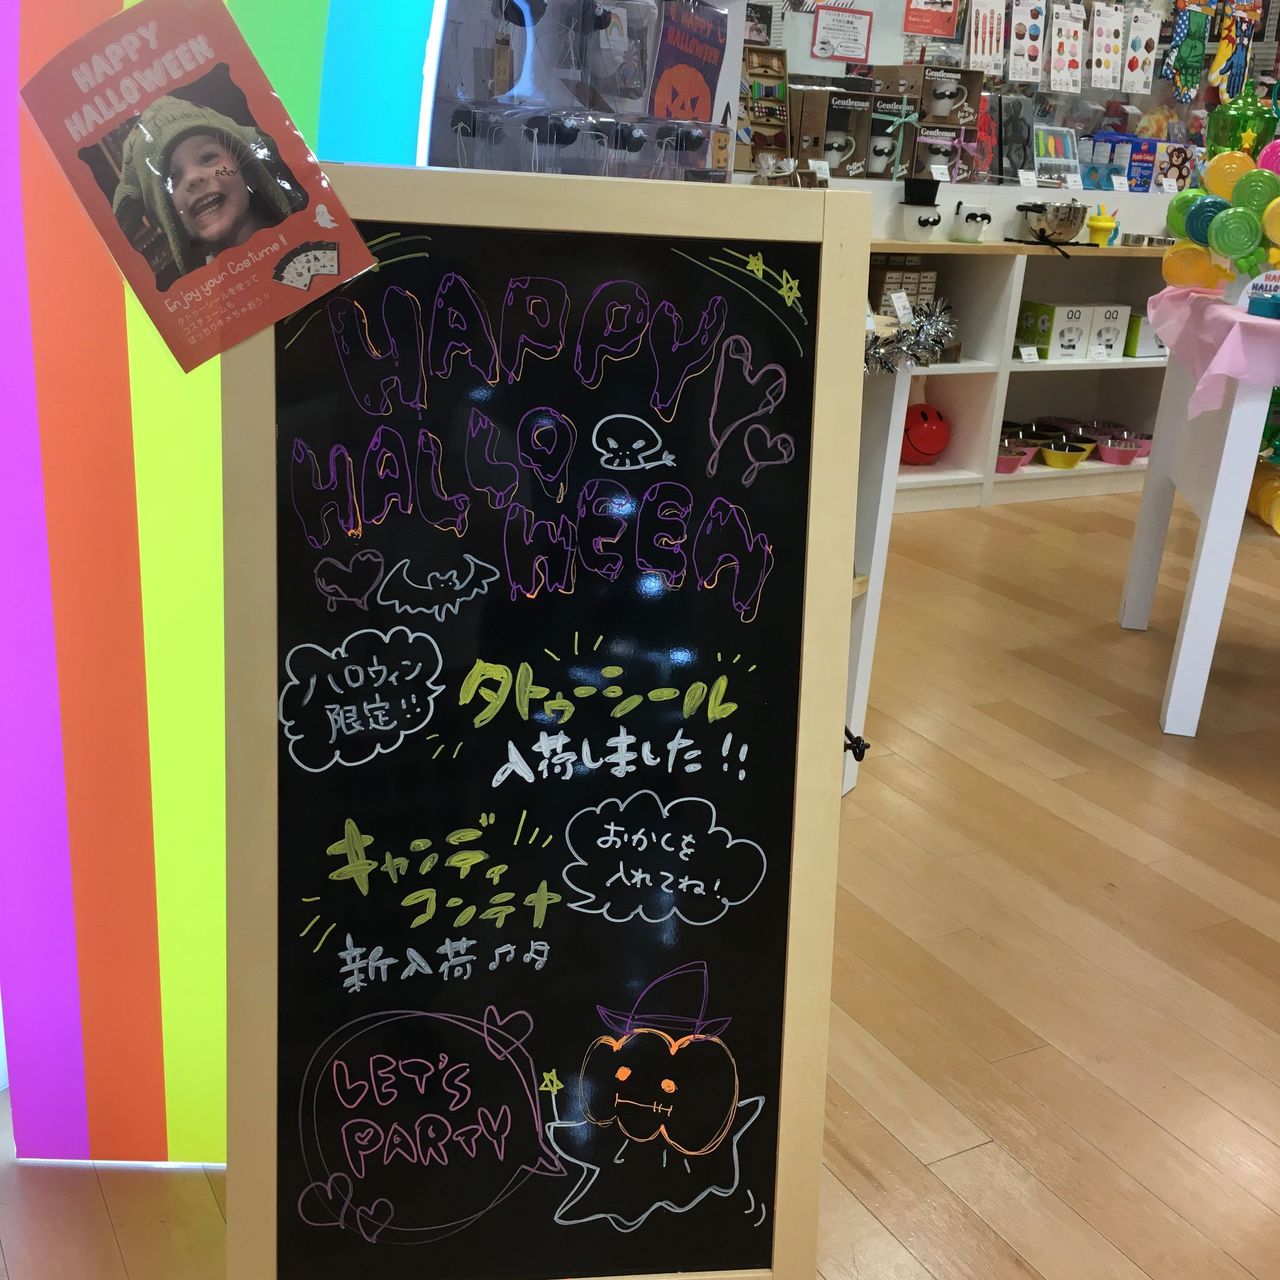 HAPPY
HALLOWEEN
BOO!
Enjoy your Costume!!
タトゥーシールを使って
コスチュームを
ばっちりキメちゃおう!!
HAPPY
HALLO
WEEN
ハロウィン
限定!!
タトゥーシール
入荷しました!!
キャンディ
コンテナ
新入荷♫♫
おかしを
入れてね!
LET'S
PARTY
HAPPY
HALLOWEEN
Gentleman
Gentleman
Gentleman
Gentleman
QQ
QQ